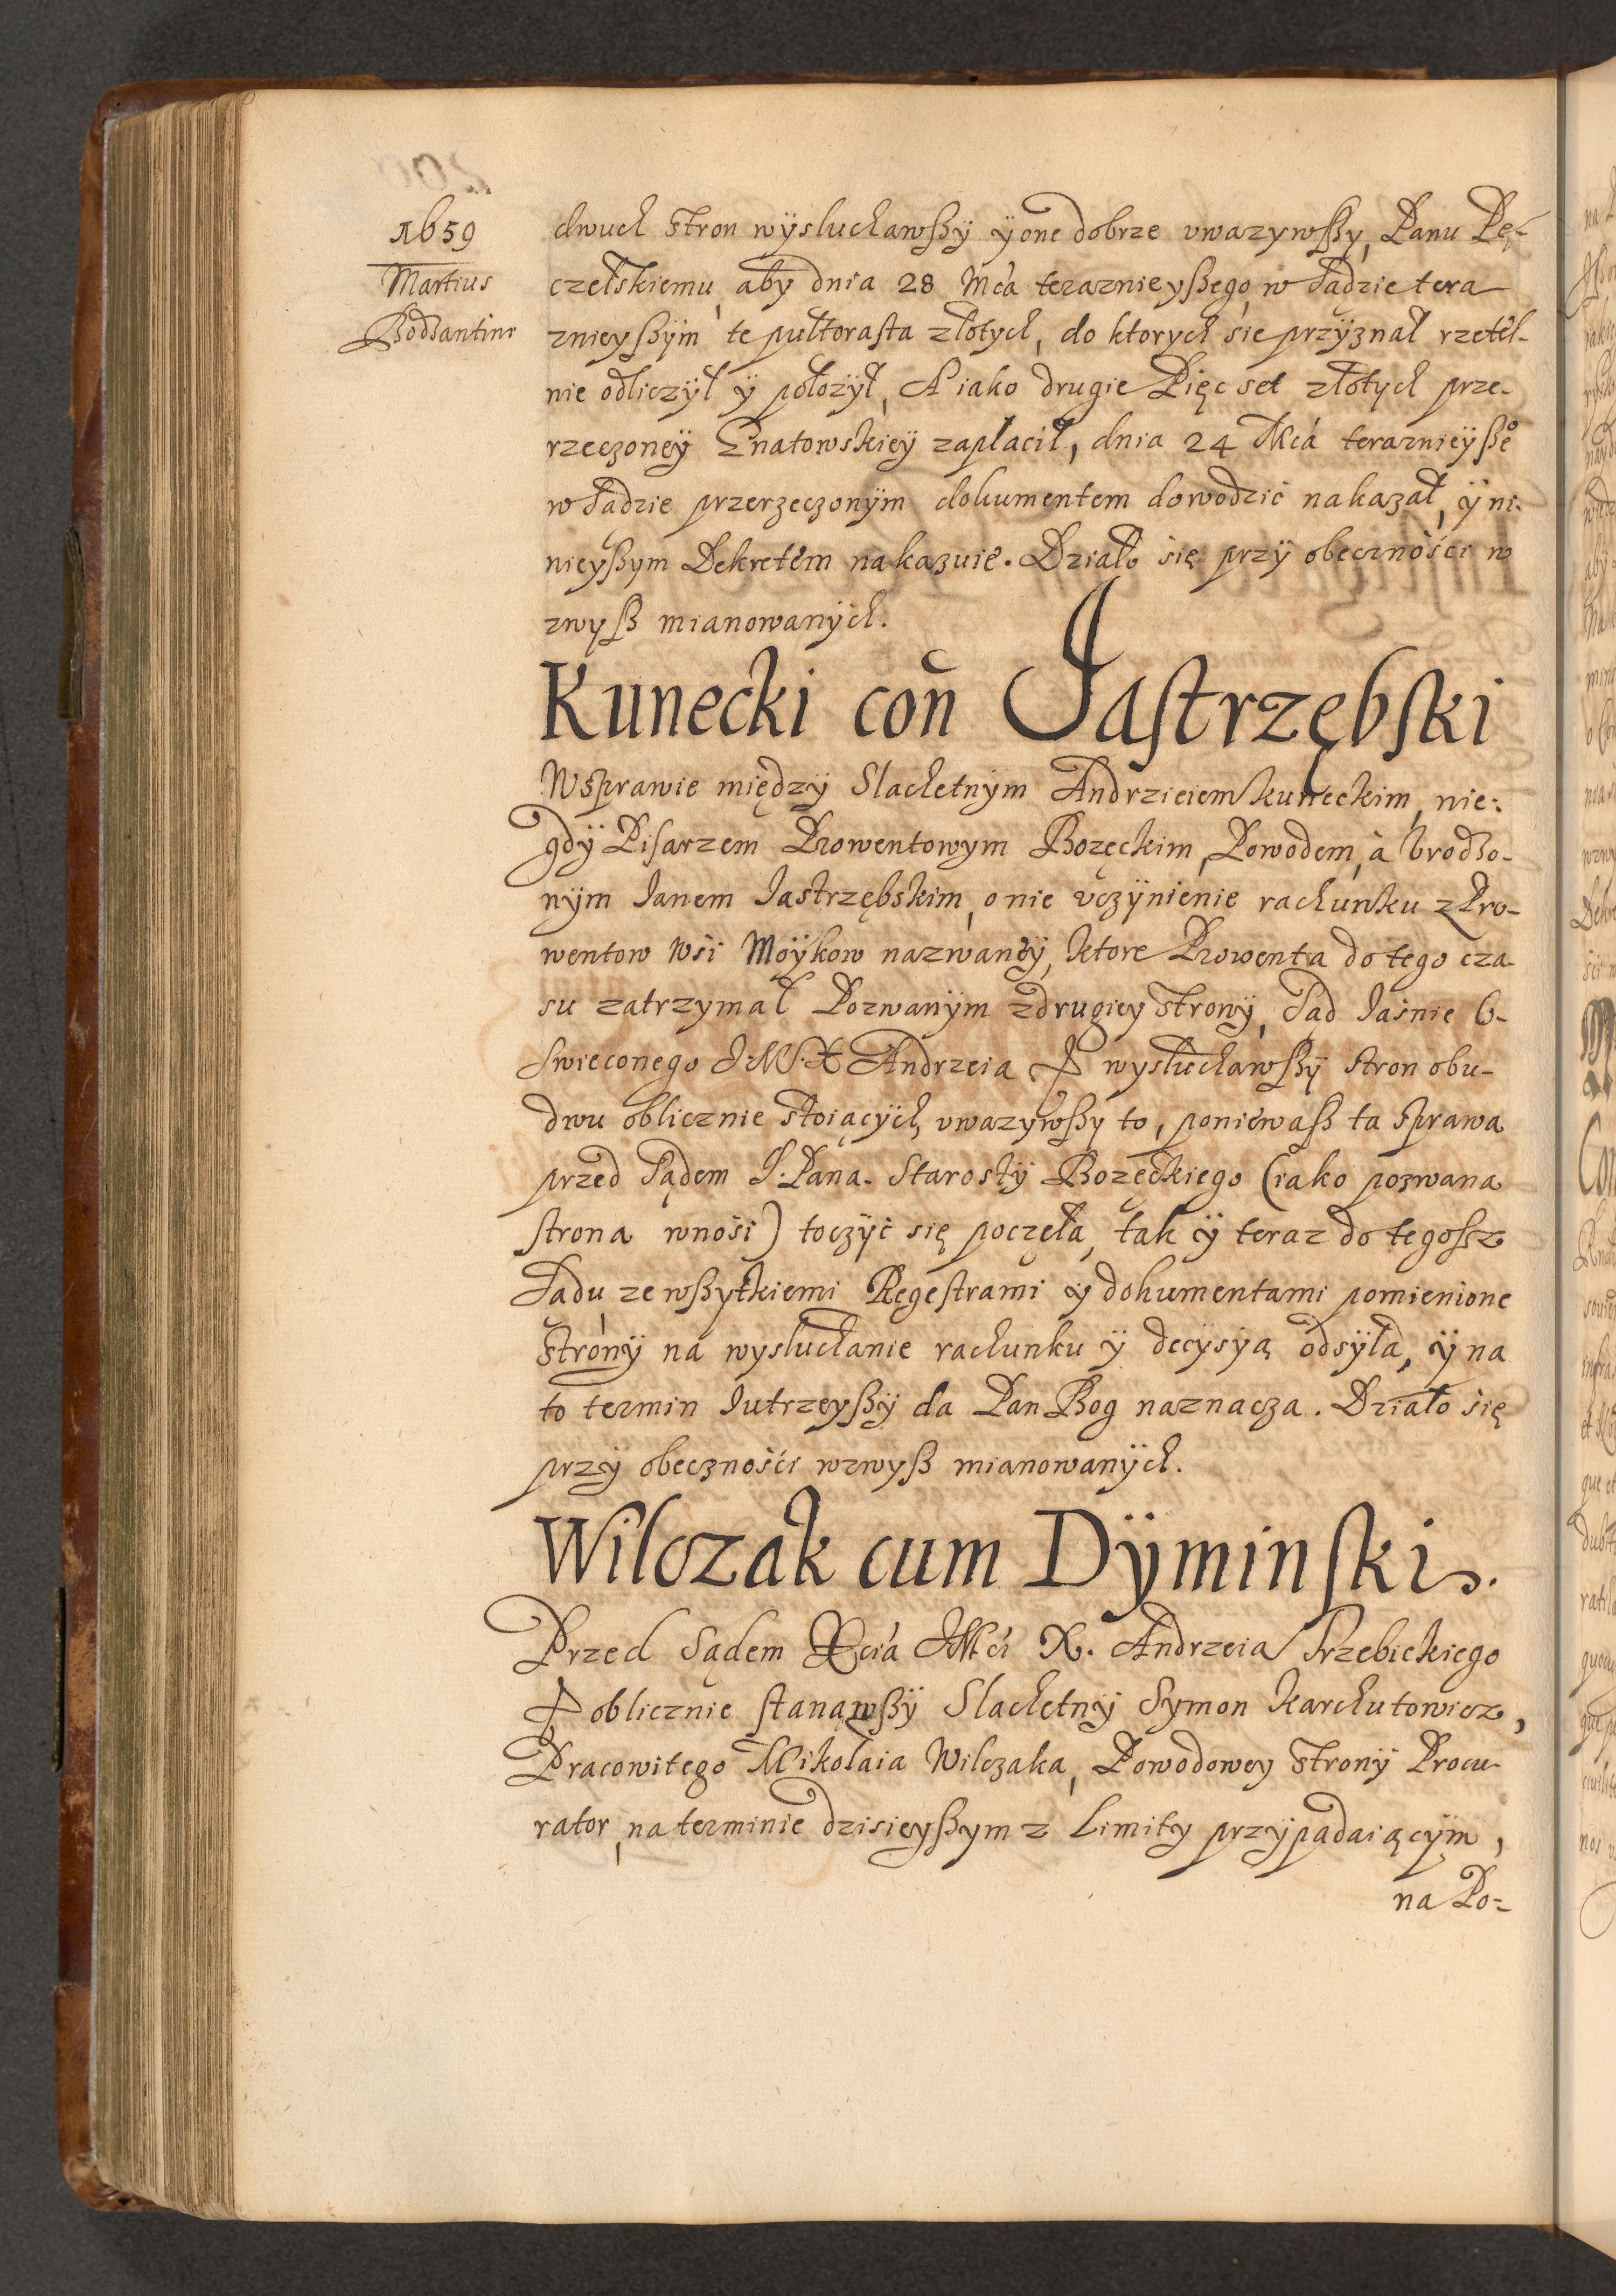 1659
Martius
Bodzantinæ
dwuch stron wÿsluchawszÿ ÿ one dobrze vwazywszy, Panu Pę-
czelskiemu, aby dnia 28 Mca teraznieyszego, w Sądzie tera
znieyszÿm te pultorasta złotych, do ktorych sie przÿznał rzetel-
nie odliczÿł ÿ położÿł, A iako drugie Pięc set złotych prze-
rzeczoneÿ Gnatowskieÿ zapłacił, dnia 24 Mca teraznieÿszeͦ
w Sądzie przerzeczonÿm dokumentem dowodzić nakazał, ÿ ni-
nieyszym Dekretem nakazuie. Działo się przÿ obecznosci w
zwysz mianowanÿch.
Kunecki con̄ Jastrzębski
W sprawie międzÿ Slachetnÿm Andrzieiem Kuneckim, nie-
gdÿ Pisarzem Prowentowym Bozęckim, Powodem, à Urodzo-
nÿm Janem Jastrzębskim, o nie vczÿnienie rachunku z Pro-
wentow Wsi Moÿkow nazwanéÿ, ktore Prowenta do tego cza-
su zatrzymał Pozwanÿm z drugiey stronÿ, Sąd Jasnie O-
swieconego J.M.X Andrzeia P wysłuchawszÿ stron obu-
dwu oblicznie stoiącÿch, vwazywszy to, poniewasz ta sprawa
przed Sądem J. Pana. Starostÿ Bozęckiego (iako pozwana
strona wnosi) toczÿć się poczęła, tak ÿ teraz do tegoszz
Sądu ze wszytkiemi Regestrami ÿ dokumentami pomienione
stronÿ na wysluchanie rachunku ÿ decÿsÿą odsÿła, ÿ na
to termin Jutrzeyszÿ da Pan Bog naznacza. Działo się
przÿ obecznosći wzwysz mianowanÿch.
Wilczak cum Dÿminskis.
Przed Sądem Xcia JMći X. Andrzeia Trzebickiego
P oblicznie stanąwszÿ Slachetnÿ Sÿmon Karchutowicz,
Pracowitego Mikołaia Wilczaka, Powodoweÿ stronÿ Procu-
rator, na terminie dzisieyszym z Limity przÿpadaiącÿm,
na Po-